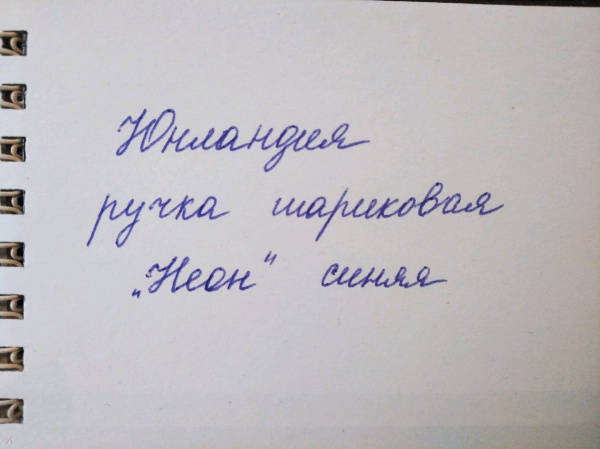 Юнландия
ручка шариковая
„Неон“ синяя